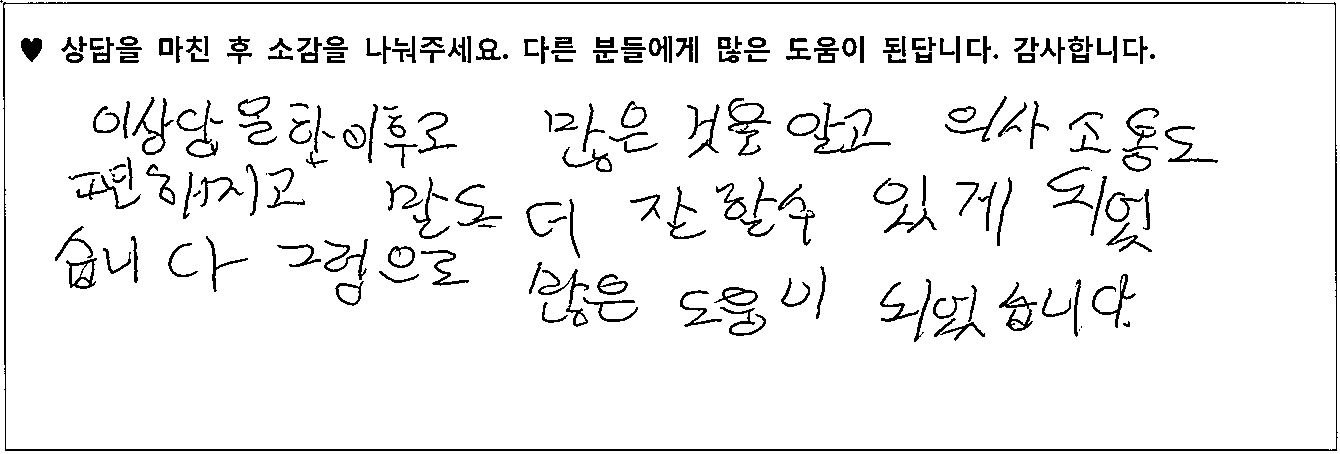 ♥ 상담을 마친 후 소감을 나눠주세요. 다른 분들에게 많은 도움이 된답니다. 감사합니다.
이상담을 한이후로 많은 것을 알고 의사 소통도
편해지고 말도 더 잘 할수 있게 되었
습니다 그럼으로 많은 도움이 되었습니다.